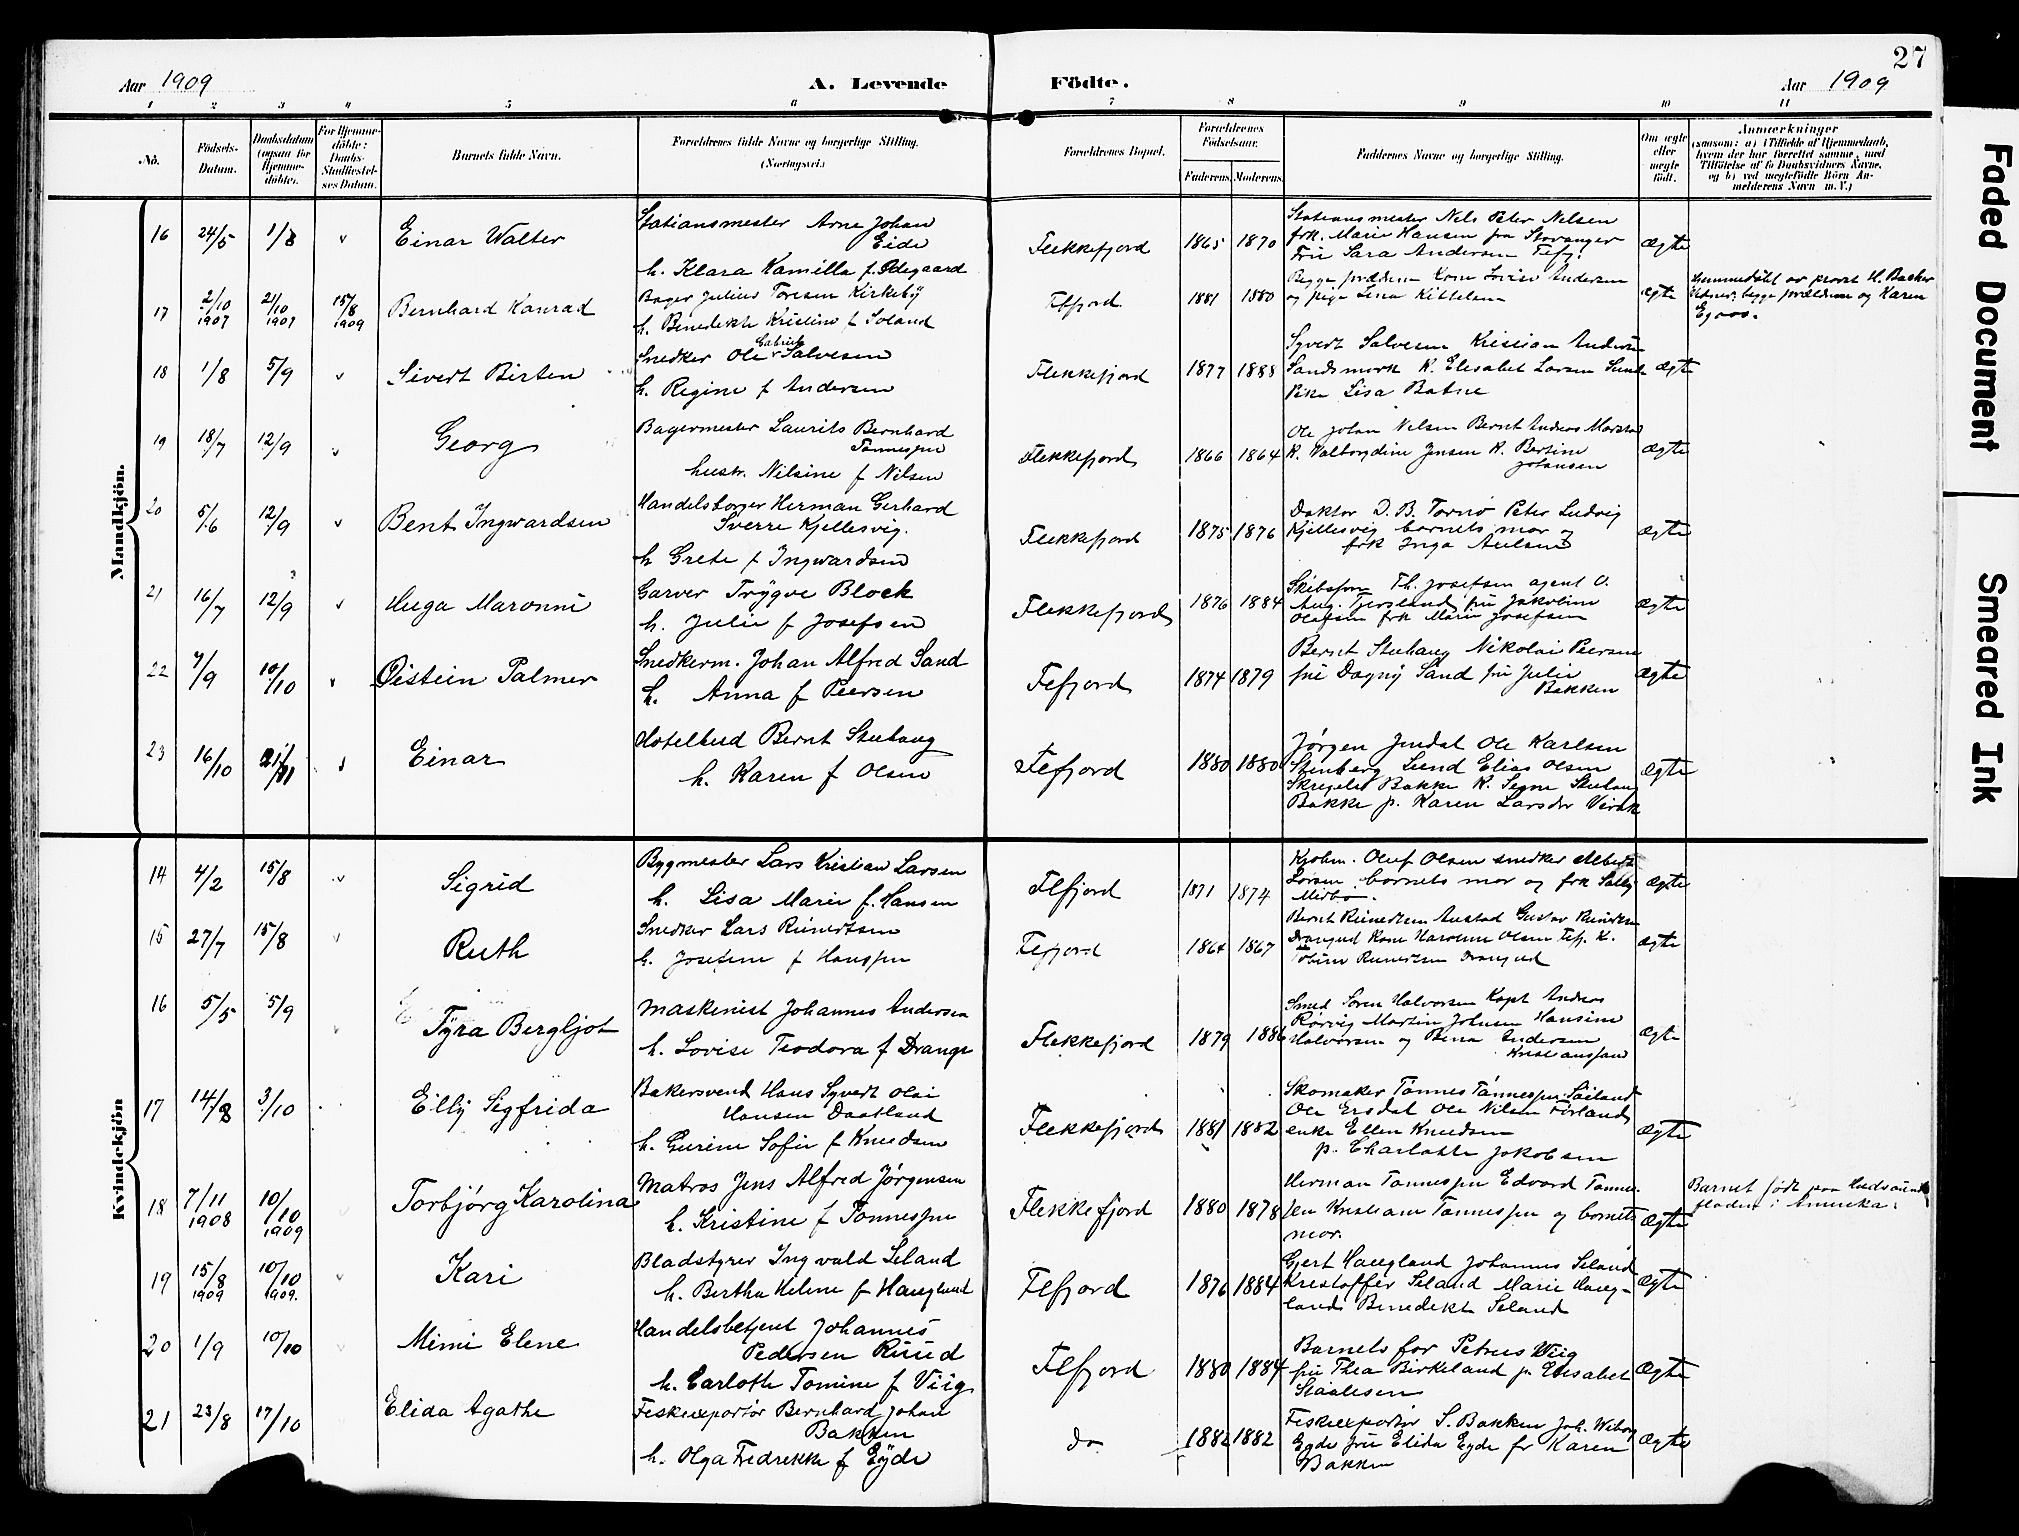 27
Aar 1909
A. Levende
Födte.
Aar 1909
1 2 3 4 5 6 7 8 9 10 11
No.
Födsels-Datum.
Daabsdatum (ogsaa for Hjemmedöbte).
For Hjemmedöbte: Daabs-Stadfæstelses Datum.
Barnets fulde Navn.
Forældrenes fulde Navne og borgerlige Stilling. (Næringsvei.)
Forældrenes Bopæl.
Forældrenes Födselsaar.
Faderens. Moderens.
Faddernes Navne og borgerlige Stilling.
Om ægte eller uegte födt.
Anmærkninger
(saasom: a) i Tilfælde af Hjemmedaab, hvem der har forrettet samme, med Tilföielse af to Daabsvidners Navne, og b) ved uegtefödte Börn Anmelderens Navn m. V.)
Mandkjön.
16 24/5 1/8 Einar Walter
Stationsmester Arne Johan Eide
h. Klara Kamilla f. Ødegaard
Flekkefjord 1865 1870
Stationsmester Nels Peter Nilsen
frk. Marie Hansen fra Stavanger
Fru Sara Andersen
ægte
17 2/10 1907 21/10 1907 15/8 1909 Bernhard Konrad
Bager Julius Toresen Kirkeby
h. Benedikte Kristine f Soland
Flfjord 1881 1880
Begge forældrene Kone Lovise Andersen
og pige Lina Kittelsen
ægte
Hjemmedöbt av provst H. Barker
Vidner, begge forældrene og Karen
18 1/8 5/9 Sivert Birten
Snedker Ole Gabriel Salvesen
h. Regine f Andersen
Flekkefjord 1877 1888
Syvert Salvesen Kristian Andersen
Sandsmark K. Elisabet Larsen Lund
Pike Lisa Batne
ægte
19 18/7 12/9 Georg
Bagermester Laurits Bernhard Tønnesen
hustr. Nilsine f Nilsen
Flekkefjord 1866 1864
Ole Johan Nilsen Bernt Andreas
K. Valborgdine Jensen K. Bertine Johansen
ægte
20 5/6 12/9 Bent Ingwardsen
Handelsborger Herman Gerhard
Sverre Kjellesvig.
h Grete f Ingwardsen
Flekkefjord 1875 1876
Doktor D. B. Tornø Peter Ludvig
Kjellesvig barnets mor og
frk Inga
ægte
21 16/7 12/9 Huga
Garver Trygve Block
h. Julie f Josefsen
Flekkefjord 1876 1884
Th. Josefsen agent O.
Aug. Fjersland, fru Jakobine
Olafsen frk Marie Josefsen
ægte
22 7/9 10/10 Øistein Palmer
Snedkerm. Johan Alfred Sand
h. Anna f Peersen
Fefjord 1874 1879
Bernt Stuhaug Nikolai Peersen
fru Dagny Sand fru Julie Bakken
ægte
23 16/10 21/11 Einar
Bernt Stuhaug
h. Karen f Olsen
Fefjord 1880 1880
Jørgen Omdal Ole Karlsen
Stenberg Lund Elias Olsen
Bakke K. Signe Stuhaug
Bakke p. Karen Larsdr
ægte
Kvindekjön
14 4/2 15/8 Sigrid
Bygmester Lars Kristian Larsen
h. Lisa Marie f. Hansen
Flfjord 1871 1874
Kjøbm. Oluf Olsen snedker Albert
Larsen barnets mor og frk Sally
ægte
15 27/7 15/8 Ruth
Snedker Lars Reinertsen
h. Josefine f Hanssen
Fefjord 1864 1867
Bernt Reinertsen Austad Gustav Reinertsen
Drangeid Kone Karoline Olsen Fefj. K.
Tobine Reinertsen Drangeid
ægte
16 5/5 5/9 Tyra Bergljot
Maskinist Johannes Andersen
h. Lovise Teodora f Drange
Flekkefjord 1879 1886
Smed Søren Halvorsen Kapt Andreas
Rørvig Martin Johnsen Hansine
Halvorsen og Bena Andersen
ægte
17 14/8 3/10 Elly Sigfrida
Bakersvend Hans Syvert Olai
Hansen Daatland
h. Gurine Sofie f Knudsen
Flekkefjord 1881 1882
Skomaker Tønnes Tønnessen
Ole Ersdal Ole Nilsen
enke Ellen Knudsen
p. Charlotte Jakobsen
ægte
18 7/11 1908 10/10 1909 Torbjørg Karolina
Matros Jens Alfred Jørgensen
h. Kristine f Tønnesen
Flekkefjord 1880 1878
Herman Tønnessen Edvard Tønnes-
sen Kristian Tønnessen og barnets
mor.
ægte
Barnet født paa
floden i Amerika.
19 15/8 1909 10/10 1909. Kari
Bladstyrer Ingvald Seland
h. Bertha Helene f Haugland
Flfjord 1876 1884
Gjert Haugland Johannes Seland
Kristoffer Seland Marie Haug-
land Benedikt Seland
ægte
20 1/9 10/10 Mimi Elene
Handelsbetjent Johannes
Pedersen Ruud
h. Carlotte Tomine f Viig
Flfjord 1880 1884
Barnets far Petrus Wiig
fru Thea Birkeland p. Elisabet
Staalesen
ægte
21 23/8 17/10 Elida Agathe
Fiskeexportør Bernhard Johan
Bakken
h. Olga Fredrikke f Eyde
do 1882 1882
Fiskeexportør S. Bakken Joh. Wiborg
Eyde fru Elida Eyde fr Karen
Bakken
ægte
Faded Document
Smeared Ink